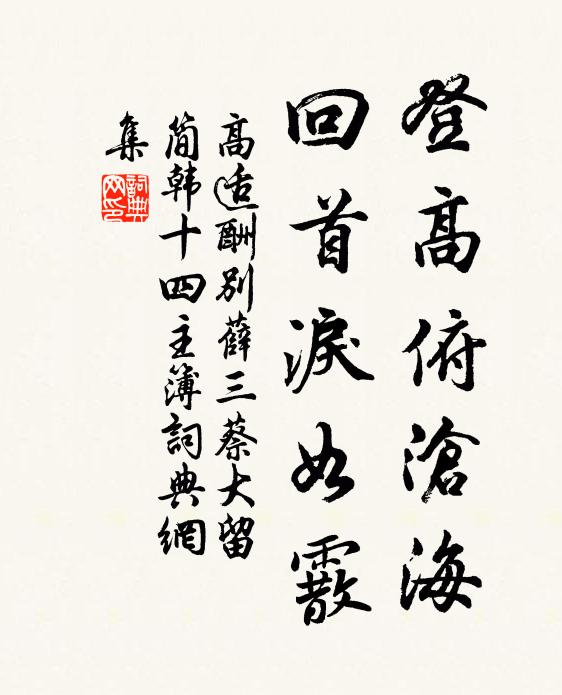 登高俯滄海
回首淚如霰
高适酬別薛三蔡大留
簡韩十四主簿詞典網
集
詞典
网印